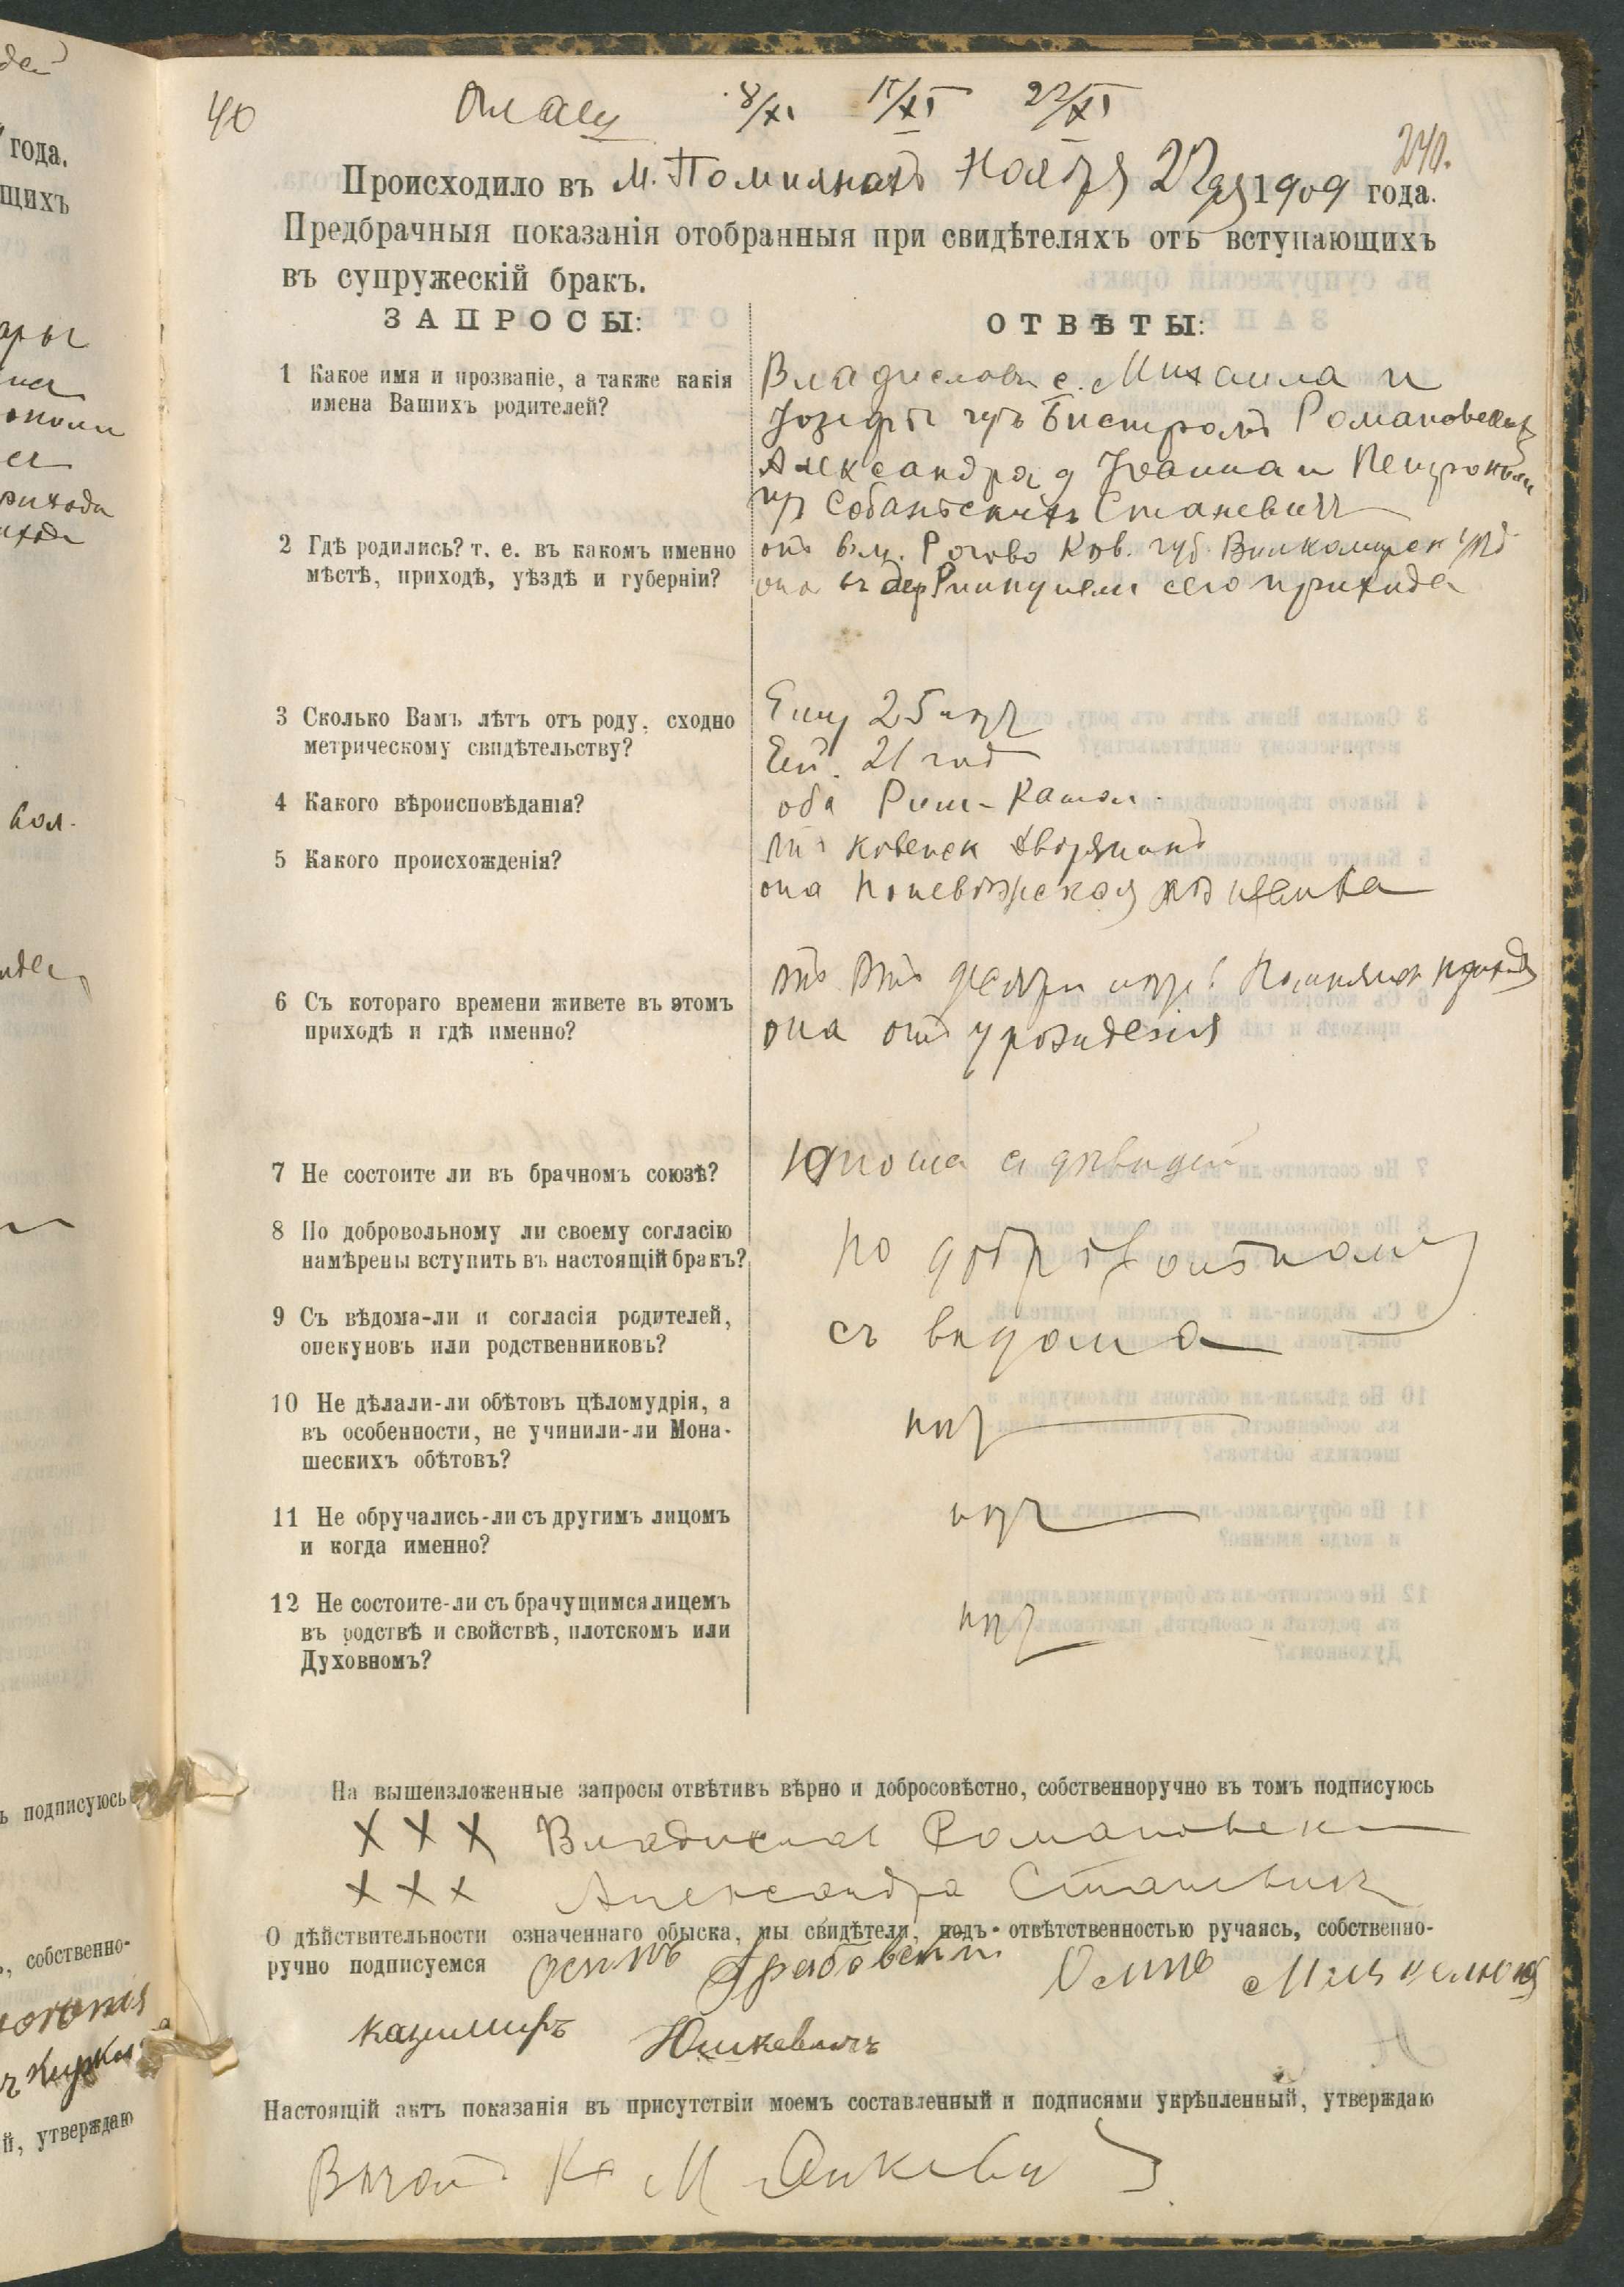 40 8/XI 15/XI 22/XI
240.
Происходило въ м. Помпянахъ Ноября 22 дня 1909 года.
Предбрачныя показанія отобранныя при свидѣтеляхъ отъ вступающихъ
въ супружескій бракъ.
ЗАПРОСЫ:
ОТВѢТЫ:
1 Какое имя и прозваніе, а также какія
имена Вашихъ родителей?
Владиславъ с. Михаила и
Іозефы изъ Бистрамъ Романовскихъ
Александра д Іоанна и Петронели
изъ Собанскихъ Станевичъ
2 Гдѣ родились? т. е. въ какомъ именно
мѣстѣ, приходѣ, уѣздѣ и губерніи?
онъ въ м. Рогово Ков. губ. Вилкомирск
она въ дер сего прихода
3 Сколько Вамъ лѣтъ отъ роду, сходно
метрическому свидѣтельству?
Ему 25 лѣтъ
Ей 21 год
4 Какого вѣроисповѣданія?
оба Рим-Катол.
5 Какого происхожденія?
онъ ковенск дворянинъ
она Поневѣжская мѣщанка
6 Съ котораго времени живете въ этомъ
приходѣ и гдѣ именно?
она отъ урожденія
7 Не состоите ли въ брачномъ союзѣ?
Юноша с дѣвицей
8 По добровольному ли своему согласію
намѣрены вступить въ настоящій бракъ?
по добровольному
9 Съ вѣдома-ли и согласія родителей,
опекуновъ или родственниковъ?
съ ведома
10 Не дѣлали-ли обѣтовъ цѣломудрія, а
въ особенности, не учинили-ли Мона-
шескихъ обѣтовъ?
нѣт
11 Не обручались-ли съ другимъ лицомъ
и когда именно?
нѣт
12 Не состоите-ли съ брачущимся лицемъ
въ родствѣ и свойствѣ, плотскомъ или
Духовномъ?
нѣт
На вышеизложенные запросы отвѣтивъ вѣрно и добросовѣстно, собственноручно въ томъ подписуюсь
X X X Владислав Романовски
X X X Александра Станевич
О дѣйствительности означеннаго обыска, мы свидѣтели, подъ отвѣтственностью ручаясь, собственно-
ручно подписуемся Осипъ Грабовски Осипъ
Казимиръ Юшкевичъ
Настоящій актъ показанія въ присутствіи моемъ составленный и подписями укрѣпленный, утверждаю